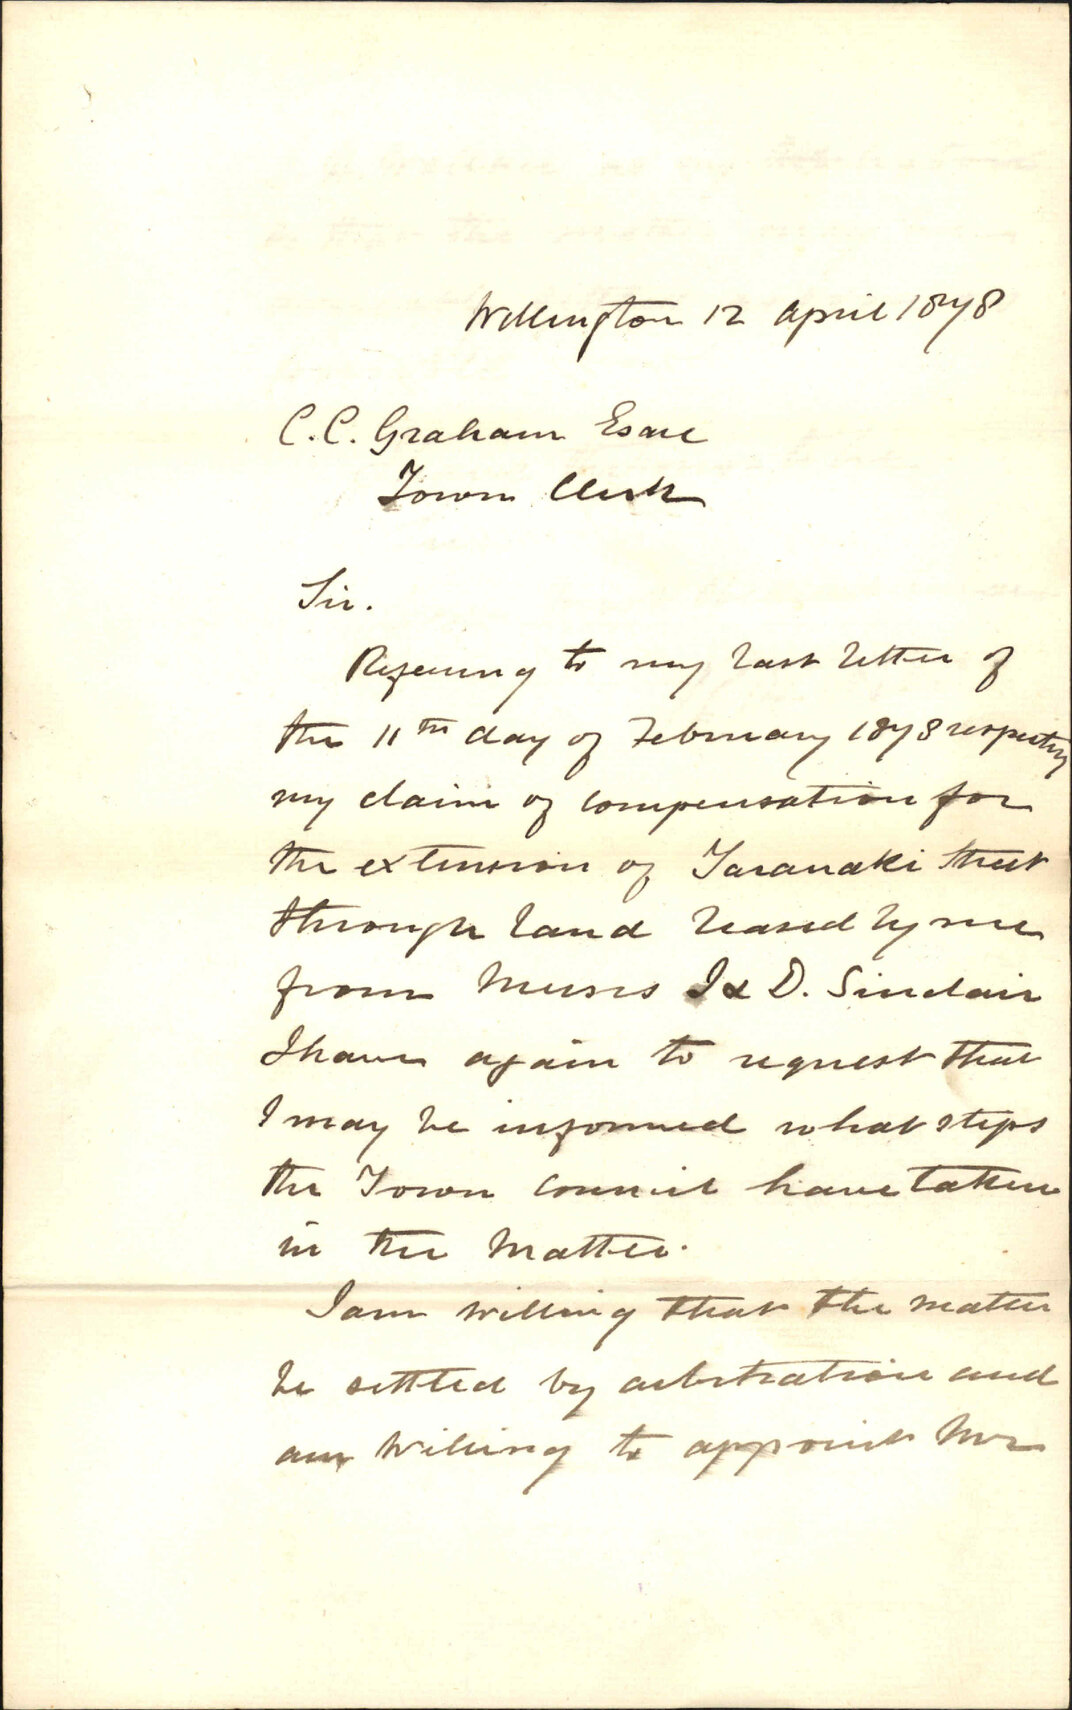 Wellington 12 April 1878
C. C. Graham Esqre
Town Clerk
Sir.
Refering to my last letter of
the 11th day of February 1878 respecting
my claim of compensation for
the extension of Taranaki Street
through land leased by me
from Messrs J & D. Sinclair
I have again to request that
I may be informed what steps
the Town Council have taken
in the Matter.
I am willing that the matter
be settled by arbitration and
am willing to appoint Mr